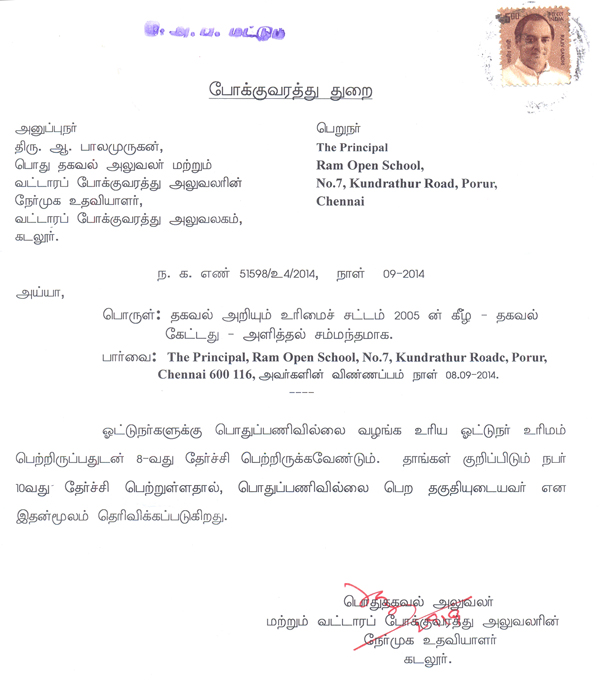 த.அ.ப. மட்டும்
5.00
भारत
INDIA
राजीव गांधी
RAJIV GANDHI
போக்குவரத்து துறை
அனுப்புநர்
திரு. ஆ. பாலமுருகன்,
பொது தகவல் அலுவலர் மற்றும்
வட்டாரப் போக்குவரத்து அலுவலரின்
நேர்முக உதவியாளர்,
வட்டாரப் போக்குவரத்து அலுவலகம்,
கடலூர்.
பெறுநர்
The Principal
Ram Open School,
No.7, Kundrathur Road, Porur,
Chennai
ந. க. எண் 51598/உ4/2014, நாள் 09-2014
அய்யா,
பொருள்: தகவல் அறியும் உரிமைச் சட்டம் 2005 ன் கீழ் - தகவல்
கேட்டது - அளித்தல் சம்மந்தமாக.
பார்வை: The Principal, Ram Open School, No.7, Kundrathur Roadc, Porur,
Chennai 600 116, அவர்களின் விண்ணப்பம் நாள் 08.09-2014.
----
ஓட்டுநர்களுக்கு பொதுப்பணிவில்லை வழங்க உரிய ஓட்டுநர் உரிமம்
பெற்றிருப்பதுடன் 8-வது தேர்ச்சி பெற்றிருக்கவேண்டும். தாங்கள் குறிப்பிடும் நபர்
10வது தேர்ச்சி பெற்றுள்ளதால், பொதுப்பணிவில்லை பெற தகுதியுடையவர் என
இதன்மூலம் தெரிவிக்கப்படுகிறது.
பொதுதகவல் அலுவலர்
மற்றும் வட்டாரப் போக்குவரத்து அலுவலரின்
நேர்முக உதவியாளர்
கடலூர்.